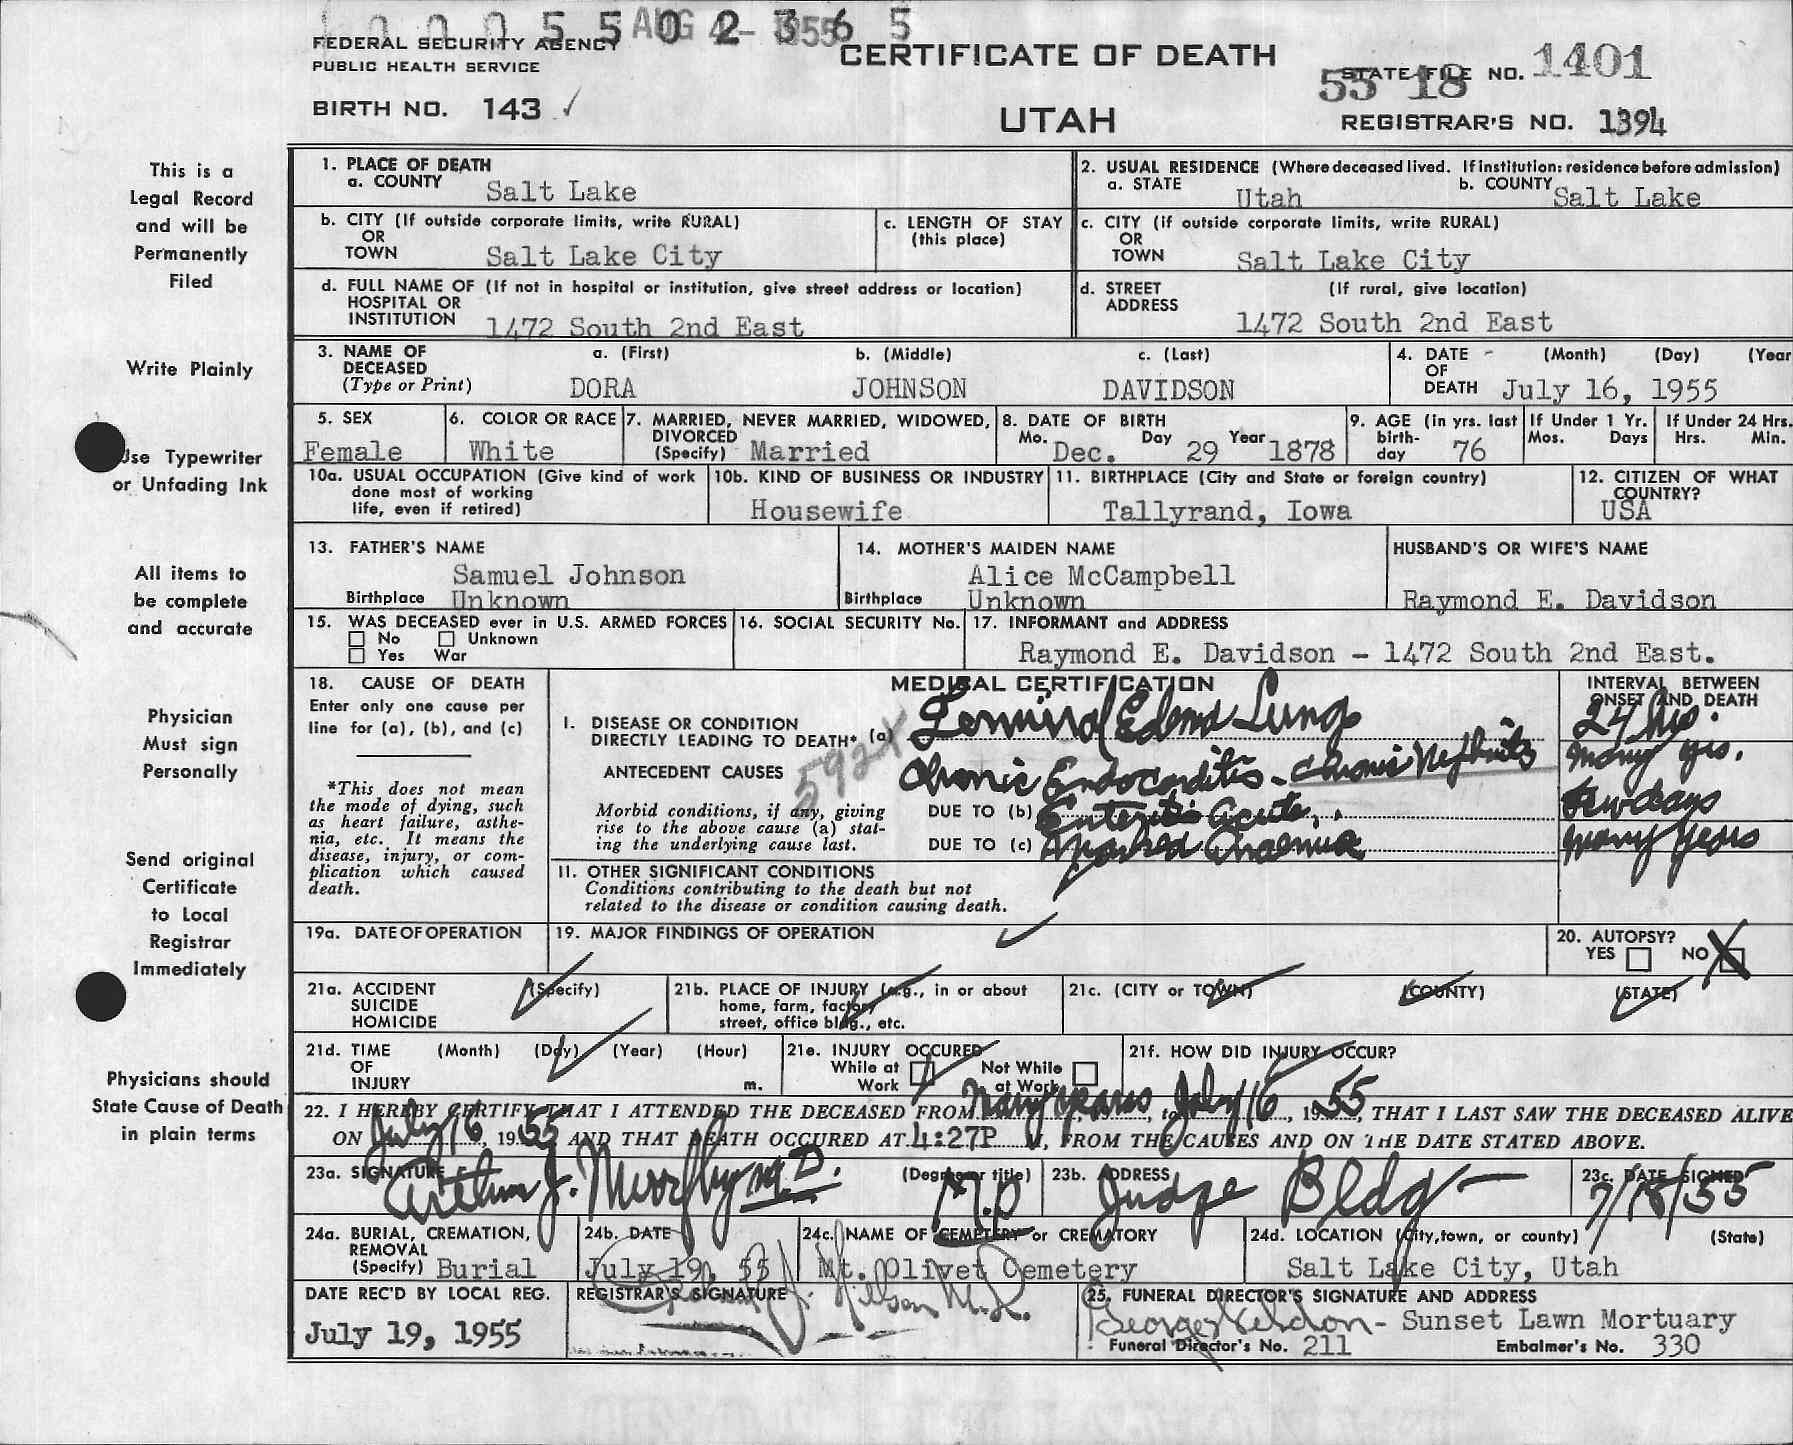 5 5 0 2 3 6 5
AUG 4 - 1955
FEDERAL SECURITY AGENCY
PUBLIC HEALTH SERVICE
BIRTH NO. 143 ✓
CERTIFICATE OF DEATH
UTAH
STATE FILE NO. 1401
55 18
REGISTRAR'S NO. 1394
This is a
Legal Record
and will be
Permanently
Filed
Write Plainly
Use Typewriter
or Unfading Ink
All items to
be complete
and accurate
Physician
Must sign
Personally
Send original
Certificate
to Local
Registrar
Immediately
Physicians should
State Cause of Death
in plain terms
1. PLACE OF DEATH
a. COUNTY Salt Lake
2. USUAL RESIDENCE (Where deceased lived. If institution: residence before admission)
a. STATE Utah b. COUNTY Salt Lake
b. CITY (If outside corporate limits, write RURAL)
OR
TOWN Salt Lake City
c. LENGTH OF STAY
(this place)
c. CITY (if outside corporate limits, write RURAL)
OR
TOWN Salt Lake City
d. FULL NAME OF (If not in hospital or institution, give street address or location)
HOSPITAL OR
INSTITUTION 1472 South 2nd East
d. STREET (If rural, give location)
ADDRESS
1472 South 2nd East
3. NAME OF a. (First) b. (Middle) c. (Last)
DECEASED
(Type or Print) DORA JOHNSON DAVIDSON
4. DATE (Month) (Day) (Year
OF
DEATH July 16, 1955
5. SEX
Female
6. COLOR OR RACE
White
7. MARRIED, NEVER MARRIED, WIDOWED,
DIVORCED
(Specify) Married
8. DATE OF BIRTH
Mo. Dec. Day 29 Year 1878
9. AGE (in yrs. last
birth-
day 76
If Under 1 Yr.
Mos. Days
If Under 24 Hrs.
Hrs. Min.
10a. USUAL OCCUPATION (Give kind of work
done most of working
life, even if retired)
10b. KIND OF BUSINESS OR INDUSTRY
Housewife
11. BIRTHPLACE (City and State or foreign country)
Tallyrand, Iowa
12. CITIZEN OF WHAT
COUNTRY?
USA
13. FATHER'S NAME
Samuel Johnson
Birthplace Unknown
14. MOTHER'S MAIDEN NAME
Alice McCampbell
Birthplace Unknown
HUSBAND'S OR WIFE'S NAME
Raymond E. Davidson
15. WAS DECEASED ever in U.S. ARMED FORCES
No Unknown
Yes War
16. SOCIAL SECURITY No.
17. INFORMANT and ADDRESS
Raymond E. Davidson - 1472 South 2nd East.
18. CAUSE OF DEATH
Enter only one cause per
line for (a), (b), and (c)
*This does not mean
the mode of dying, such
as heart failure, asthe-
nia, etc. It means the
disease, injury, or com-
plication which caused
death.
MEDICAL CERTIFICATION
INTERVAL BETWEEN
ONSET AND DEATH
I. DISEASE OR CONDITION
DIRECTLY LEADING TO DEATH* (a) Terminal Edema Lungs 24 hrs.
592X
ANTECEDENT CAUSES Chronic Endocarditis - Chronic Nephritis many yrs.
Morbid conditions, if any, giving
rise to the above cause (a) stat-
ing the underlying cause last.
DUE TO (b) Enteritis acute, few days
DUE TO (c) Marked Anaemia many years
11. OTHER SIGNIFICANT CONDITIONS
Conditions contributing to the death but not
related to the disease or condition causing death.
19a. DATE OF OPERATION
19. MAJOR FINDINGS OF OPERATION
20. AUTOPSY?
YES NO X
21a. ACCIDENT (Specify)
SUICIDE
HOMICIDE
21b. PLACE OF INJURY (e.g., in or about
home, farm, factory
street, office bldg., etc.
21c. (CITY or TOWN) (COUNTY) (STATE)
21d. TIME (Month) (Day) (Year) (Hour)
OF
INJURY m.
21e. INJURY OCCURED
While at Not While
Work at Work
21f. HOW DID INJURY OCCUR?
22. I HEREBY CERTIFY THAT I ATTENDED THE DECEASED FROM Many years, to July 16, 1955, THAT I LAST SAW THE DECEASED ALIVE
ON July 16, 1955 AND THAT DEATH OCCURED AT 4:27P M, FROM THE CAUSES AND ON THE DATE STATED ABOVE.
23a. SIGNATURE (Degree or title)
Arthur J. Murphy M.D. M.D
23b. ADDRESS
Judge Bldg -
23c. DATE SIGNED
7/18/55
24a. BURIAL, CREMATION,
REMOVAL
(Specify) Burial
24b. DATE
July 19, 55
24c. NAME OF CEMETERY or CREMATORY
Mt. Olivet Cemetery
24d. LOCATION (City, town, or county) (State)
Salt Lake City, Utah
DATE REC'D BY LOCAL REG.
July 19, 1955
REGISTRAR'S SIGNATURE
25. FUNERAL DIRECTOR'S SIGNATURE AND ADDRESS
- Sunset Lawn Mortuary
Funeral Director's No. 211 Embalmer's No. 330